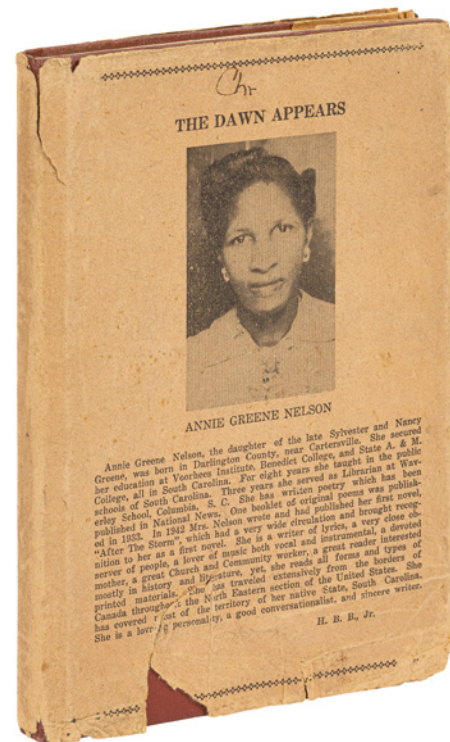 Chr
THE DAWN APPEARS
ANNIE GREENE NELSON
Annie Greene Nelson, the daughter of the late Sylvester and Nancy
Greene, was born in Darlington County, near Cartersville. She secured
her education at Voorhees Institute, Benedict College, and State A. & M.
College, all in South Carolina. For eight years she taught in the public
schools of South Carolina. Three years she served as Librarian at Wav-
erley School, Columbia, S. C. She has written poetry which has been
published in National News. One booklet of original poems was publish-
ed in 1933. In 1942 Mrs. Nelson wrote and had published her first novel,
"After The Storm", which had a very wide circulation and brought recog-
nition to her as a first novel. She is a writer of lyrics, a very close ob-
server of people, a lover of music both vocal and instrumental, a devoted
mother, a great Church and Community worker, a great reader interested
mostly in history and literature, yet she reads all forms and types of
printed materials. She has traveled extensively from the borders of
Canada throughout the North Eastern section of the United States. She
has covered most of the territory of her native State, South Carolina.
She is a loving personality, a good conversationalist, and sincere writer.
H. B. B., Jr.